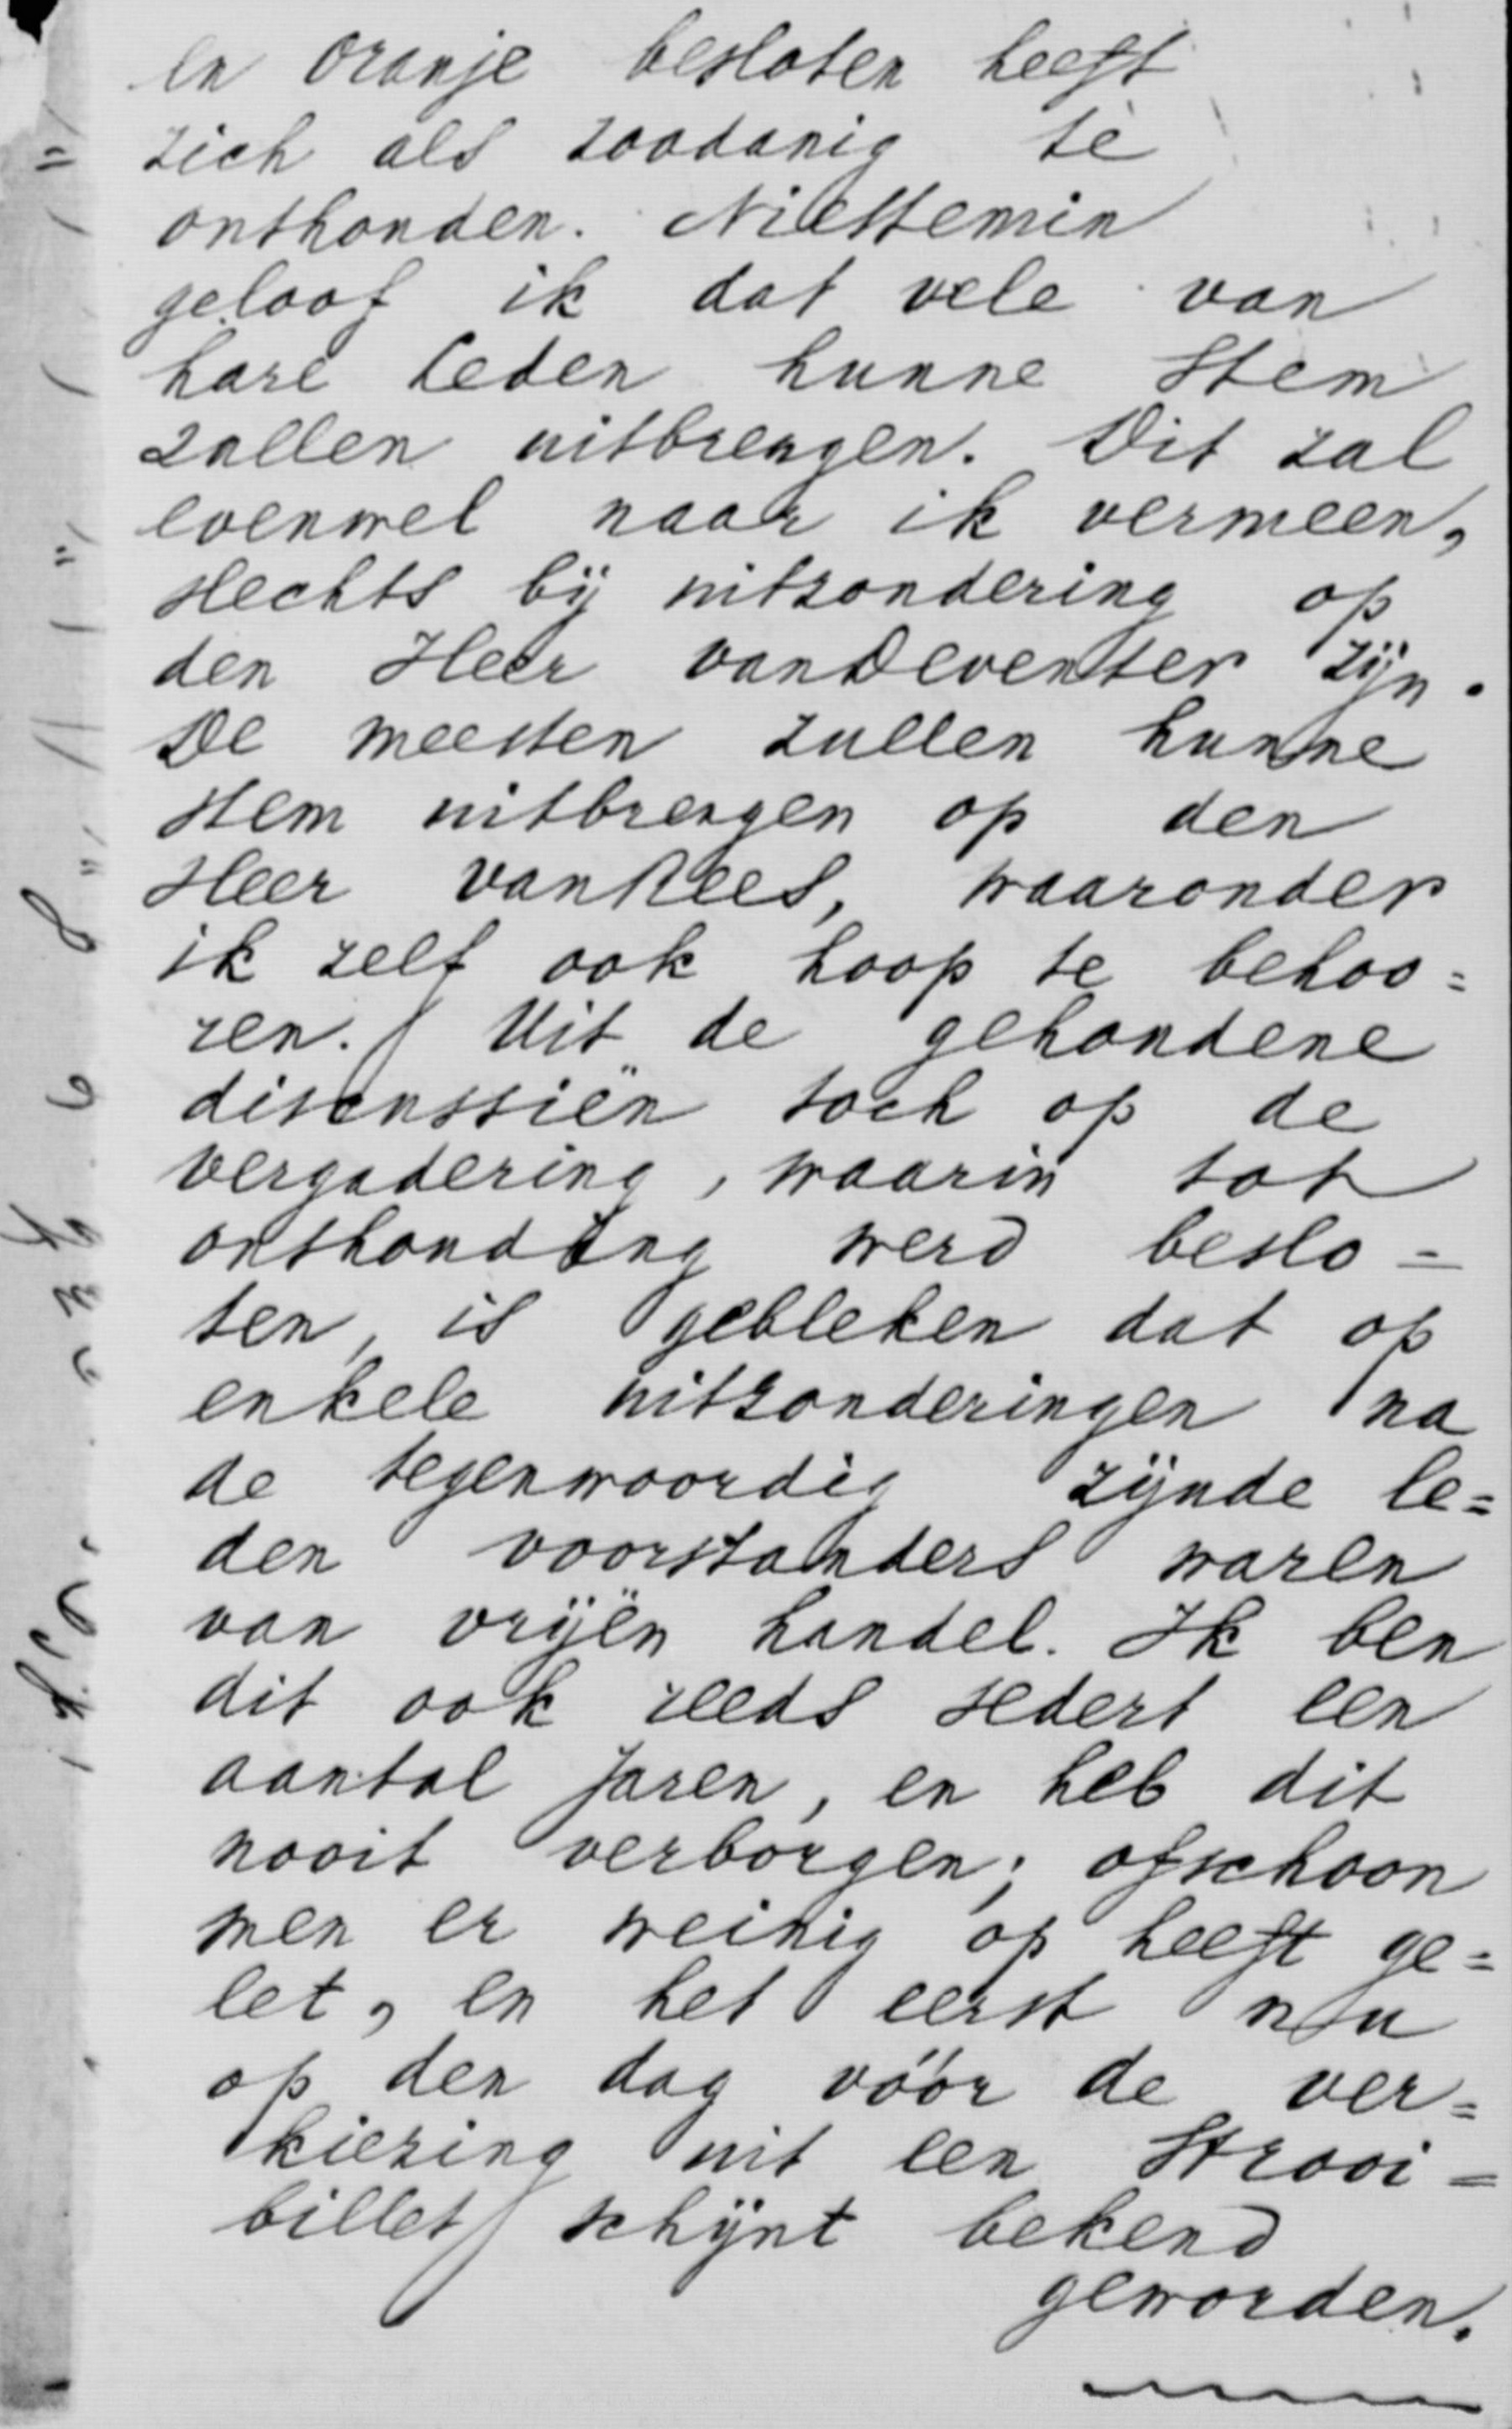 en Oranje besloten heeft
zich als zoodanig te
onthouden. Niettemin
geloof ik dat vele van
hare Leden hunne Stem
zullen uitbrengen. Dit zal
evenwel naar ik vermeen,
slechts bij uitzondering op
den Heer van Deventer zijn.
De meesten zullen hunne
stem uitbrengen op den
Heer van Rees, waaronder
ik zelf ook hoop te behoo=
ren. Uit de gehoudene
discussiën toch op de
vergadering, waarin tot
onthouding werd beslo=
ten, is gebleken dat op
enkele uitzonderingen na
de tegenwoordig zijnde le=
den voorstanders waren
van vrijën handel. Ik ben
dit ook reeds sedert een
aantal jaren, en heb dit
nooit verborgen; ofschoon
men er weinig op heeft ge=
let, en het eerst nu
op den dag vóór de ver=
kiezing uit een Strooi=
billet schijnt bekend
geworden.